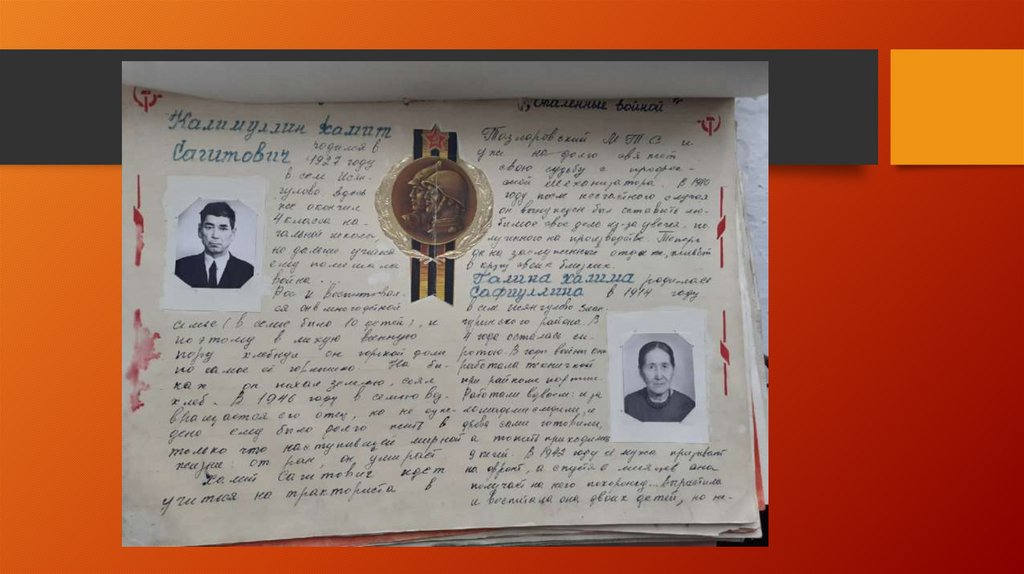 „Опаленные войной"
Калимуллин Хамит
Сагитович родился в
1927 году
в сем Исян-
гулово, здесь
же окончил
4 класса на-
чальной школы,
но дальше учиться
ему помешала
война.
Рос и воспитывал-
ся он в многодетной
семье (в семье было 10 детей), и
поэтому в лихую военную
пору хлебнул он горькой доли
по самое её горлышко. На бы-
ках он пахал землю, сеял
хлеб. В 1946 году в семью воз-
вращается его отец, но не суж-
дено ему было долго жить в
только что наступившей мирной
жизни: от ран, он умирает.
Хамит Сагитович идет
учиться на тракториста в
Тазларовский МТС и
уже на долго свяжет
свою судьбу с професс-
ией механизатора. В 1980
году после несчастного случая
он вынужден был оставить лю-
бимое свое дело из-за увечья, по-
лученного на производстве. Теперь
он на заслуженном отдыхе, живёт
в кругу своих близких.
Галина Халима родилась
Сафиуллина в 1914 году
в сем Исянгулово Зиан-
чуринского района. В
4 года осталась си-
ротою. В годы войны она
работала техничкой
при райкоме партии.
Работали вдвоем: и за
лошадьми смотрели, и
дрова сами готовили,
а топить приходилось
углей. В 1942 году её мужа призывают
на фронт, а спустя 6 месяцев она
получает на него похоронку... вырастила
и воспитала она двоих детей, но не-